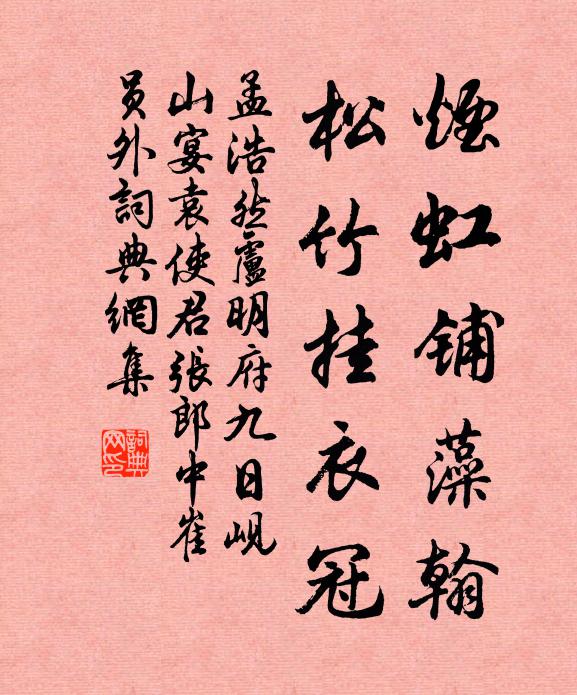 煙虹鋪藻翰
松竹挂衣冠
孟浩然盧明府九日峴
山宴袁使君張郎中崔
員外詞典網集
詞典
网印